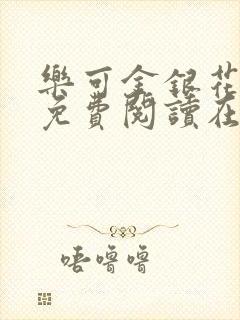 樂可金銀花
免費閱讀在
唔嚕嚕